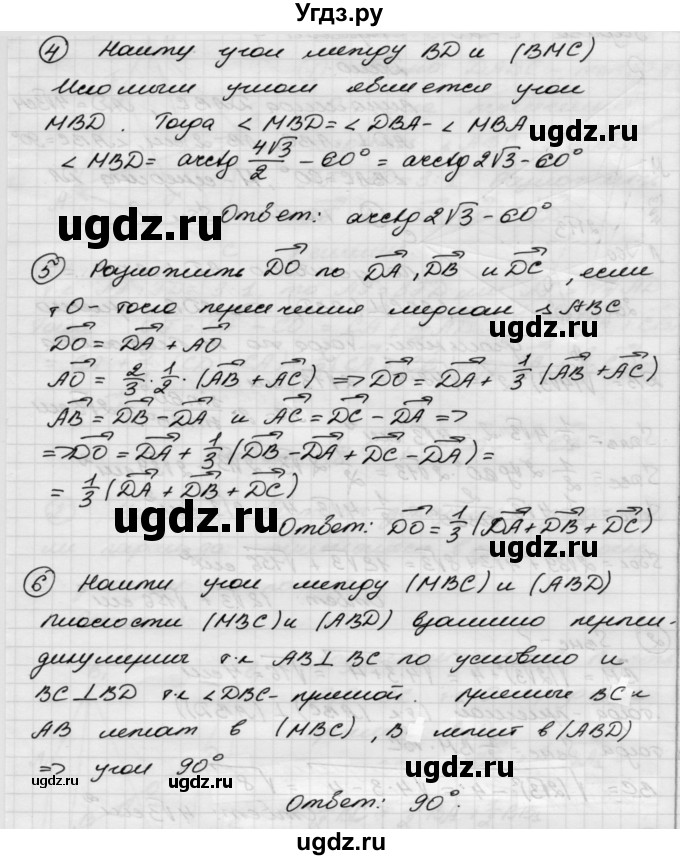 Угдз.ру
④ Найти угол между BD и (BMC)
Искомым углом является угол
MBD. Тогда ∠MBD=∠DBA-∠MBA
∠MBD= arctg 4√3/2 - 60° = arctg 2√3 - 60°
ugdz.ru
Ответ: arctg 2√3 - 60°
⑤ Разложить DO по DA, DB и DC, если
ugdz.ru
т O - точка пересечения медиан △ABC
DO = DA + AO
AO = 2/3 · 1/2 · (AB + AC) => DO = DA + 1/3 (AB + AC)
AB = DB - DA и AC = DC - DA =>
=> DO = DA + 1/3 (DB - DA + DC - DA) =
= 1/3 (DA + DB + DC)
ugdz.ru
Ответ: DO = 1/3 (DA + DB + DC)
ugdz.ru
⑥ Найти угол между (MBC) и (ABD)
плоскости (MBC) и (ABD) взаимно перпен-
дикулярны т.к AB⊥BC по условию и
BC⊥BD т.к ∠DBC - прямой. Прямые BC и
AB лежат в (MBC), B лежит в (ABD)
=> угол 90°
ugdz.ru
ugdz.ru
Ответ: 90°.
ugdz.ru